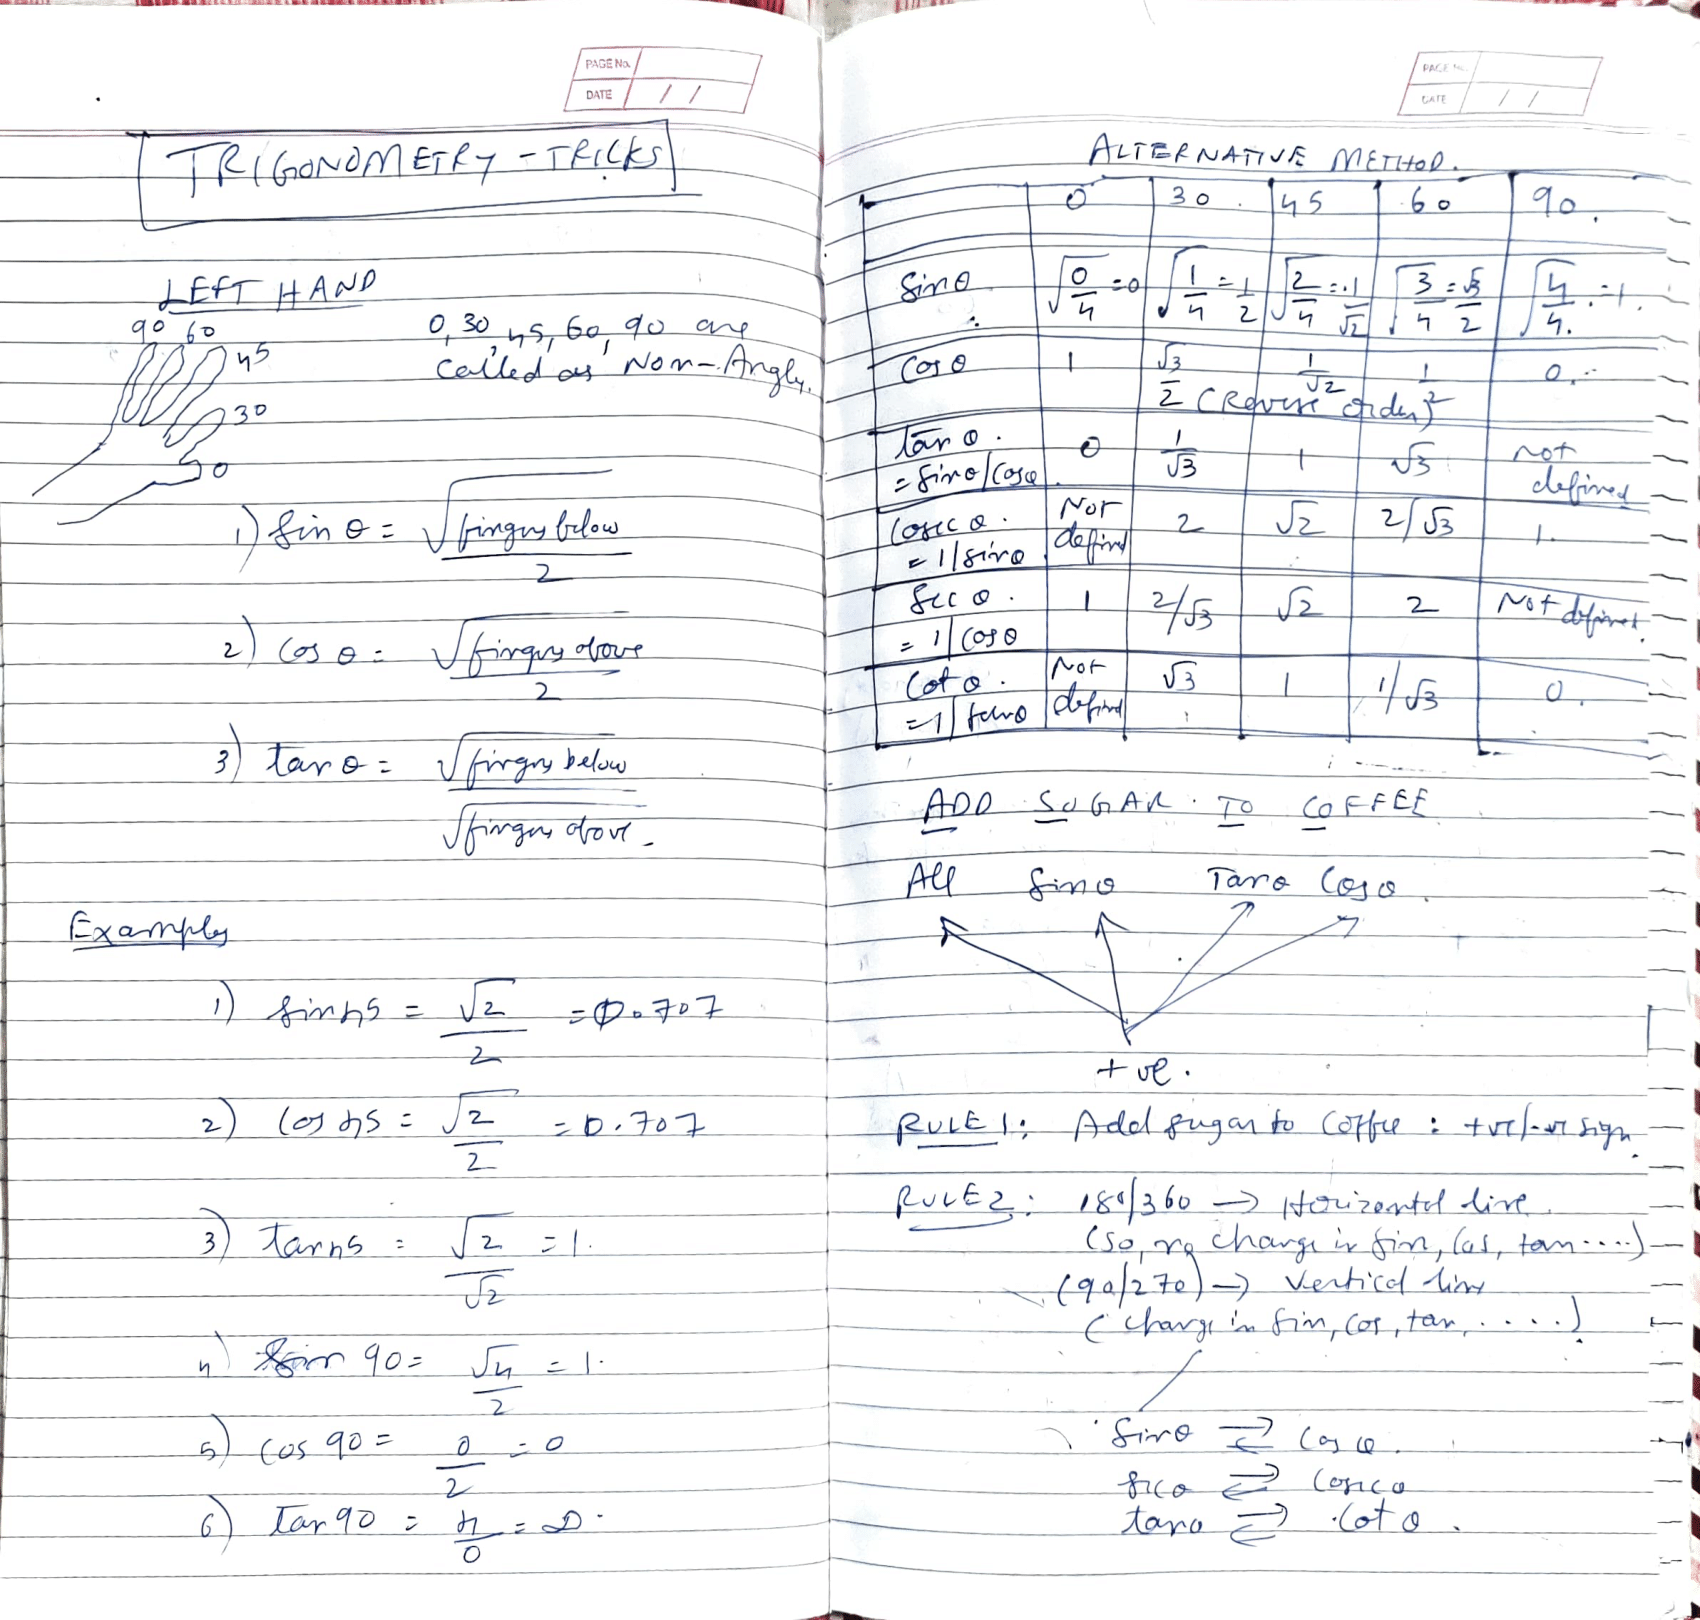 PAGE No.
DATE / /
TRIGONOMETRY - TRICKS
LEFT HAND
90 60
45
30
0
0, 30, 45, 60, 90 are
called as Nom-Angles.
1) sin θ = √fingers below / 2
2) cos θ = √fingers above / 2
3) tan θ = √fingers below / √fingers above.
Examples
1) sin 45 = √2 / 2 = 0.707
2) cos 45 = √2 / 2 = 0.707
3) tan 45 = √2 / √2 = 1.
4) sin 90 = √4 / 2 = 1.
5) cos 90 = 0 / 2 = 0
6) Tan 90 = 4 / 0 = ∞.
PAGE No.
DATE / /
ALTERNATIVE METHOD.
0 30. 45 60 90.
Sin θ √0/4 = 0 √1/4 = 1/2 √2/4 = 1/√2 √3/4 = √3/2 √4/4. = 1.
Cos θ 1 √3/2 1/√2 1/2 0.
(Reverse order)
tan θ. 0 1/√3 1 √3 not defined
= sin θ/cos θ
Cosec θ. Not defined 2 √2 2/√3 1.
= 1/sin θ
Sec θ. 1 2/√3 √2 2 Not defined.
= 1/cos θ
Cot θ. Not defined √3 1 1/√3 0.
= 1/tan θ
ADD SUGAR TO COFFEE
All Sin θ Tan θ Cos θ
+ve.
RULE 1: Add sugar to Coffee : +ve/-ve sign
RULE 2: 180/360 → Horizontal line.
(so, no change in sin, cos, tan....)
(90/270) → Vertical line
(change in sin, cos, tan, ....)
Sin θ ⇄ Cos θ.
sec θ ⇄ Cosec θ
tan θ ⇄ Cot θ.